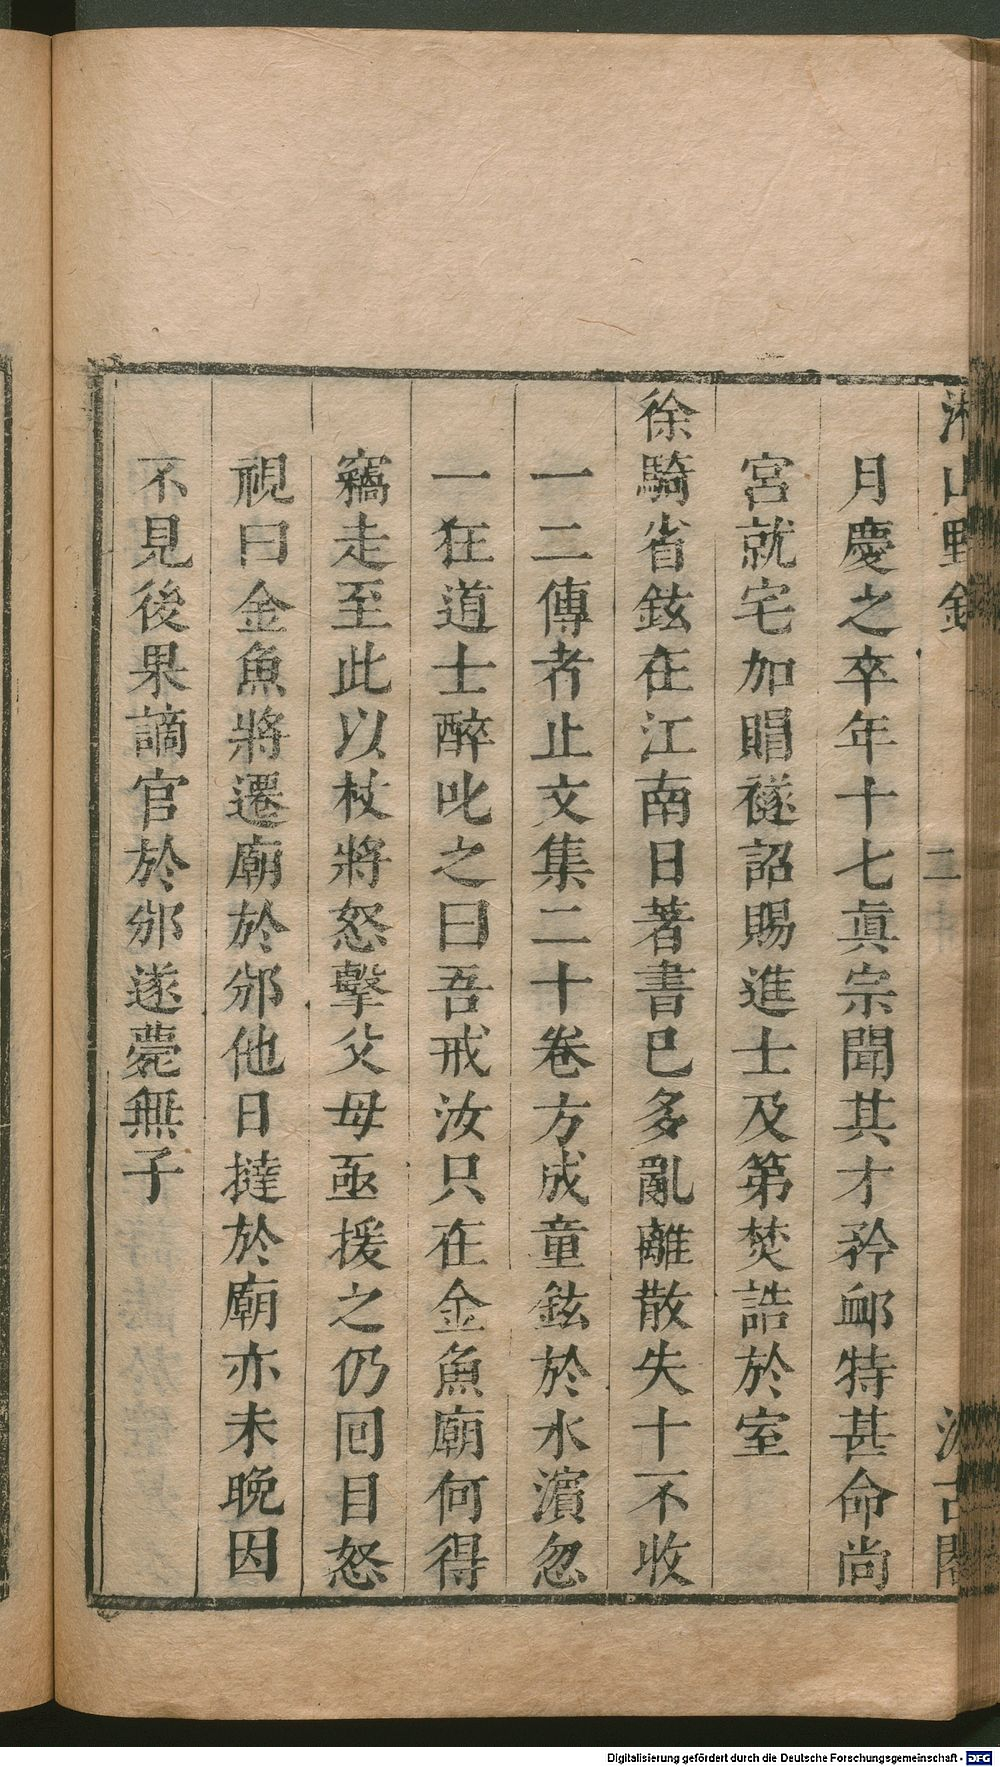 湘山野錄
二
汲古閣
月慶之卒年十七眞宗聞其才矜衈特甚命尚
宮就宅加賵襚詔賜進士及第焚誥於室
徐騎省鉉在江南日著書巳多亂離散失十不收
一二傳者止文集二十卷方成童鉉於水濵忽
一狂道士醉叱之曰吾戒汝只在金魚廟何得
竊走至此以杖將怒擊父母亟援之仍回目怒
視曰金魚將遷廟於邠他日撻於廟亦未晚因
不見後果謫官於邠遂薨無子
Digitalisierung gefördert durch die Deutsche Forschungsgemeinschaft - DFG